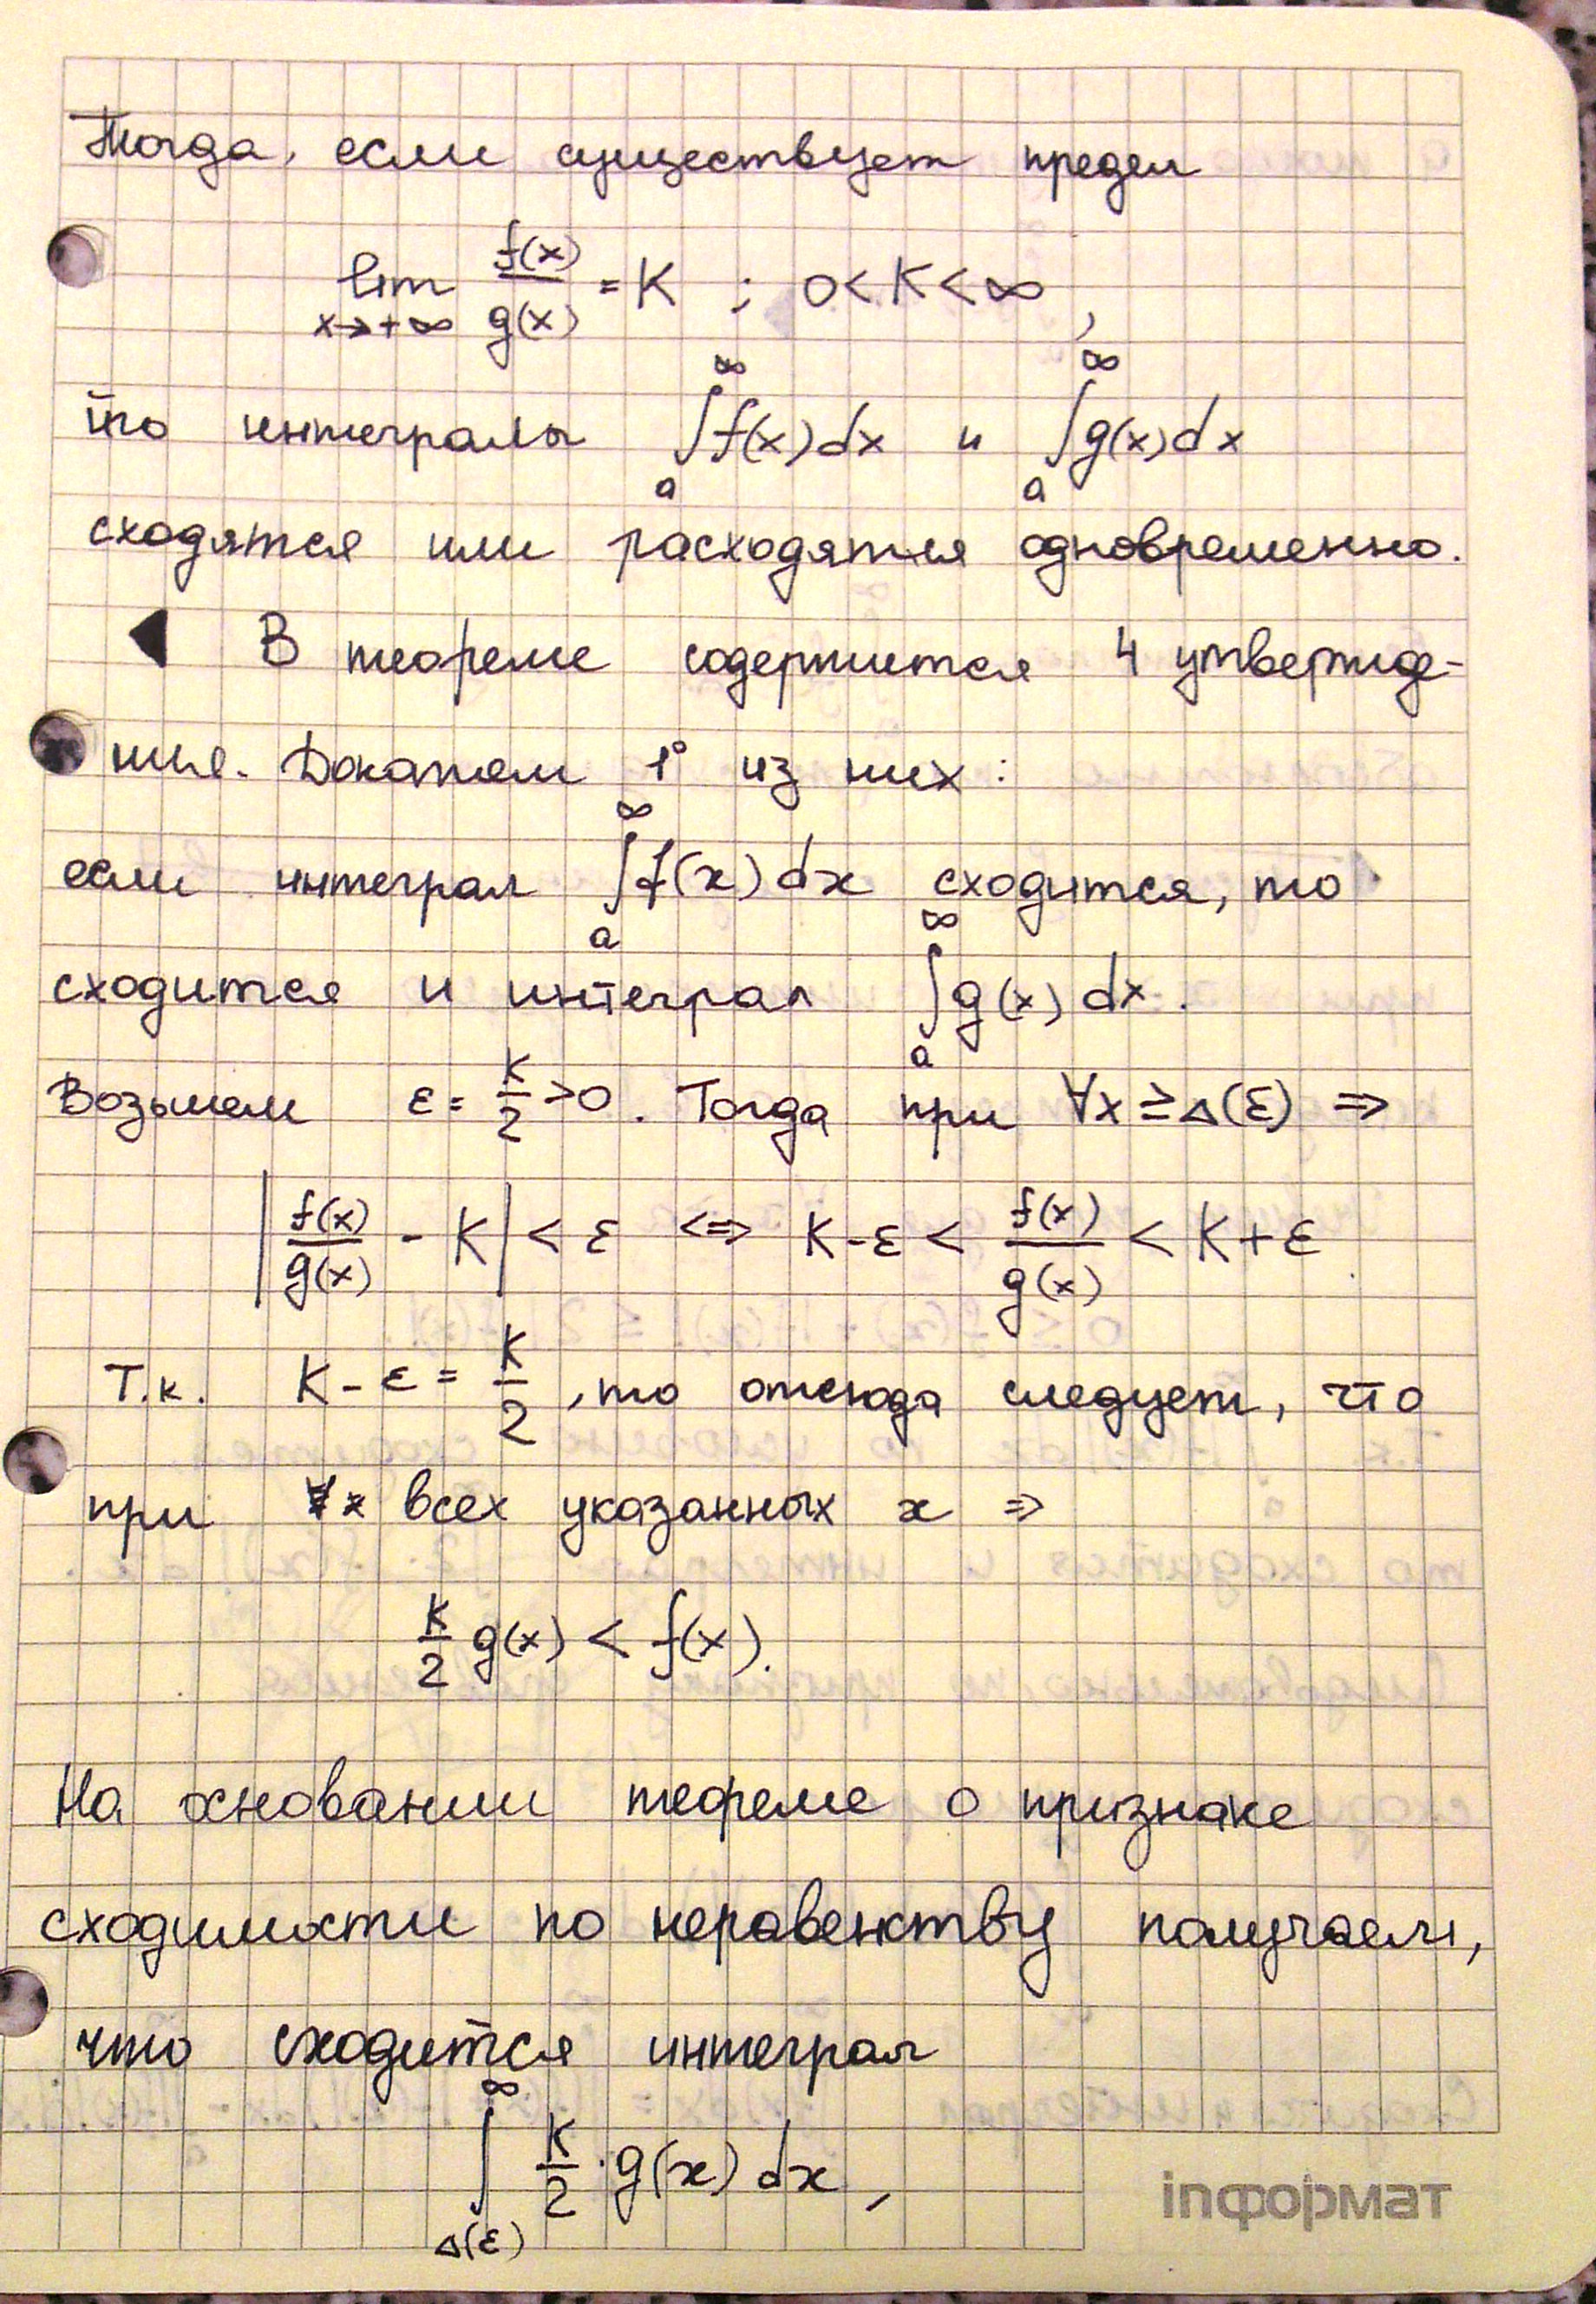 Тогда, если существует предел
lim x→+∞ f(x)/g(x) = K ; 0<K<∞,
то интегралы ∫ₐ^∞ f(x)dx и ∫ₐ^∞ g(x)dx
сходятся или расходятся одновременно.
◀ В теореме содержится 4 утвержде-
ния. Докажем 1° из них:
если интеграл ∫ₐ^∞ f(x)dx сходится, то
сходится и интеграл ∫ₐ^∞ g(x)dx.
Возьмем ε = K/2 >0. Тогда при ∀x ≥ Δ(ε) ⇒
|f(x)/g(x) - K| < ε <=> K-ε < f(x)/g(x) < K+ε
Т.к. K-ε = K/2, то отсюда следует, что
при всех указанных x ⇒
K/2 g(x) < f(x).
На основании теореме о признаке
сходимости по неравенству получаем,
что сходится интеграл
∫_Δ(ε)^∞ K/2 · g(x) dx,
inформат